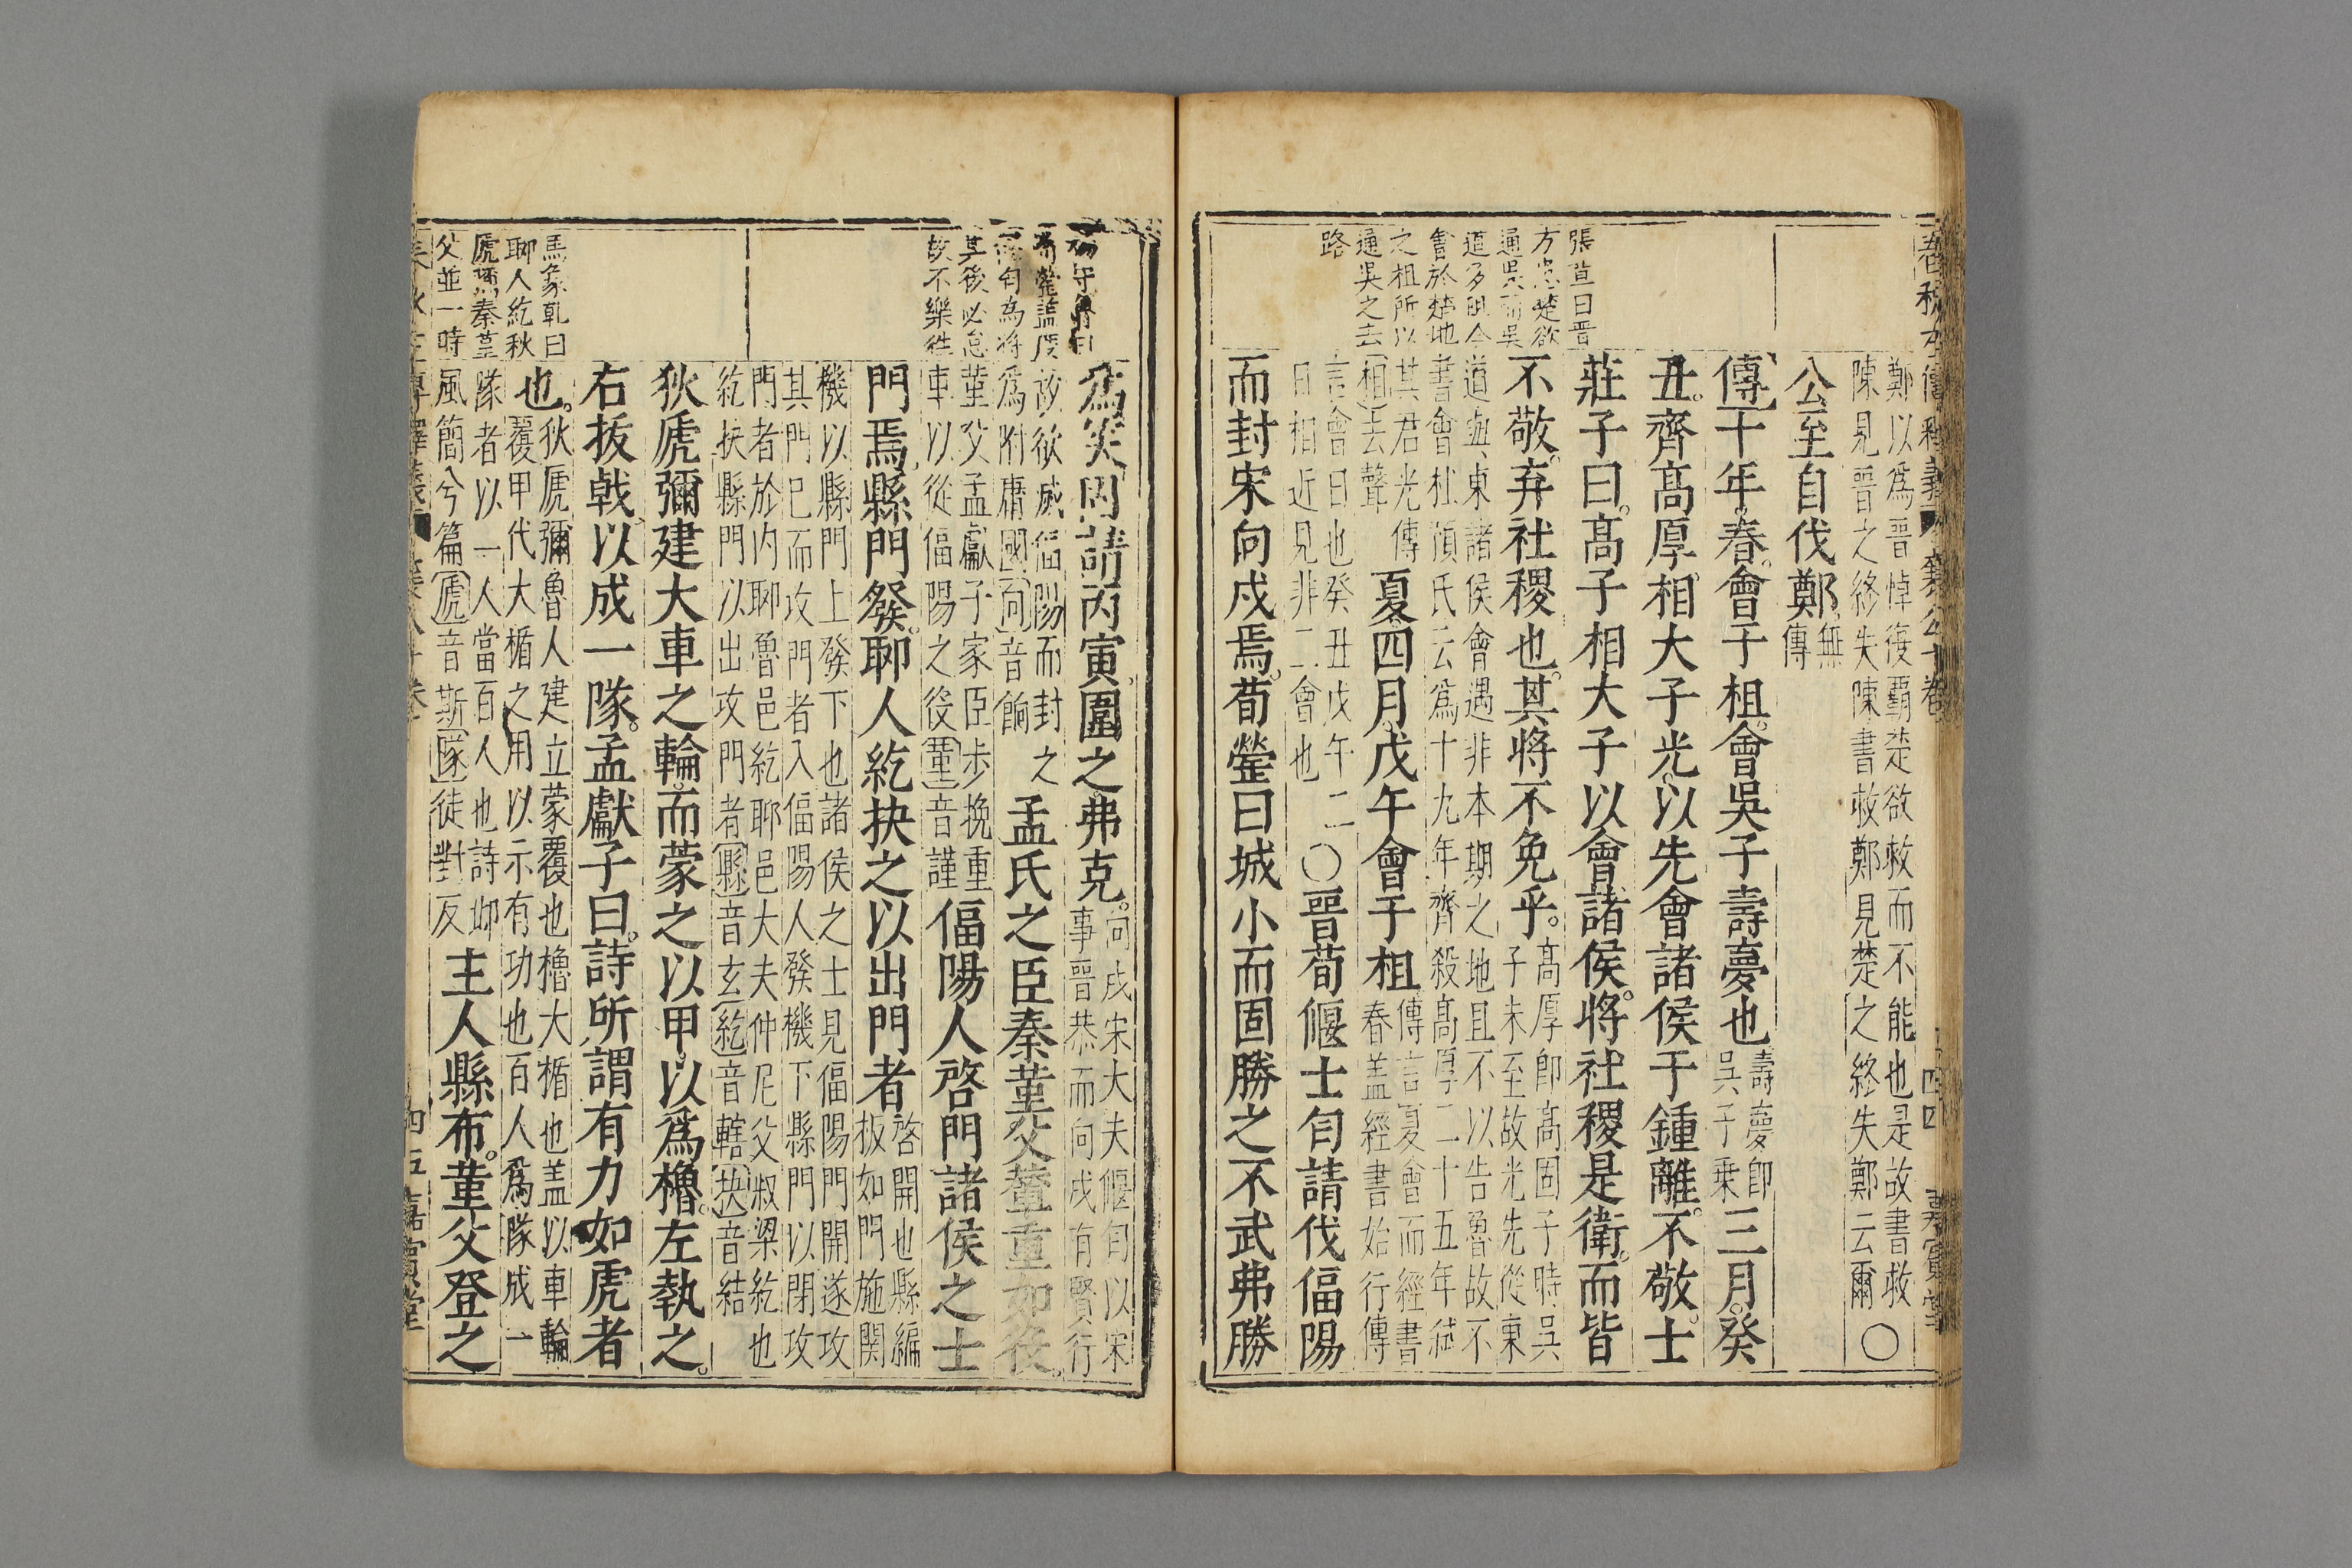 鄭以爲晉悼復霸楚欲救而不能也是故書救
陳見晉之終失陳書救鄭見楚之終失鄭云爾〇
公至自伐鄭無傳
傳十年春會于柤會吳子壽夢也壽夢卽吳子乗三月癸
丑齊高厚相大子光以先會諸侯于鍾離不敬士
莊子曰高子相大子以會諸侯將社稷是衛而皆
不敬弃社稷也其將不免乎高厚卽高固子時吳子未至故光先從東
道與東諸侯會遇非本期之地且不以告魯故不
書會杜預氏云爲十九年齊殺高厚二十五年弒
其君光傳相去聲夏四月戊午會于柤傳言夏會而經書春盖經書始行傳
言會日也癸丑戊午二日相近見非二會也〇晉荀偃士匄請伐偪陽
而封宋向戌焉荀罃曰城小而固勝之不武弗勝
張洽曰晉
方患楚欲
通吳而吳
道多阻今
會於楚地
之柤所以
通吳之去
路
爲笑固請丙寅圍之弗克向戌宋大夫偃匄以宋事晉恭而向戌有賢行
故欲滅偪陽而封之爲附庸國向音餉孟氏之臣秦堇父輦重如役
堇父孟獻子家臣步挽重車以從偪陽之役堇音謹偪陽人啓門諸侯之士
門焉縣門發聊人紇抉之以出門者啓開也縣編板如門施関
機以縣門上發下也諸侯之士見偪陽門開遂攻
其門已而攻門者入偪陽人發機下縣門以閉攻
門者於内聊魯邑紇聊邑大夫仲尼父叔梁紇也
紇抉縣門以出攻門者縣音玄紇音轄抉音結
狄虒彌建大車之輪而蒙之以甲以爲櫓左執之
右拔戟以成一隊孟獻子曰詩所謂有力如虎者
也狄虒彌魯人建立蒙覆也櫓大楯也盖以車輪覆甲代大楯之用以示有功也百人爲隊成一
隊者以一人當百人也詩邶風簡兮篇虒音斯隊徒對反主人縣布堇父登之
故不樂往
馬象乾曰
聊人紇狄
虒彌秦堇
父並一時
四五 嘉賓堂